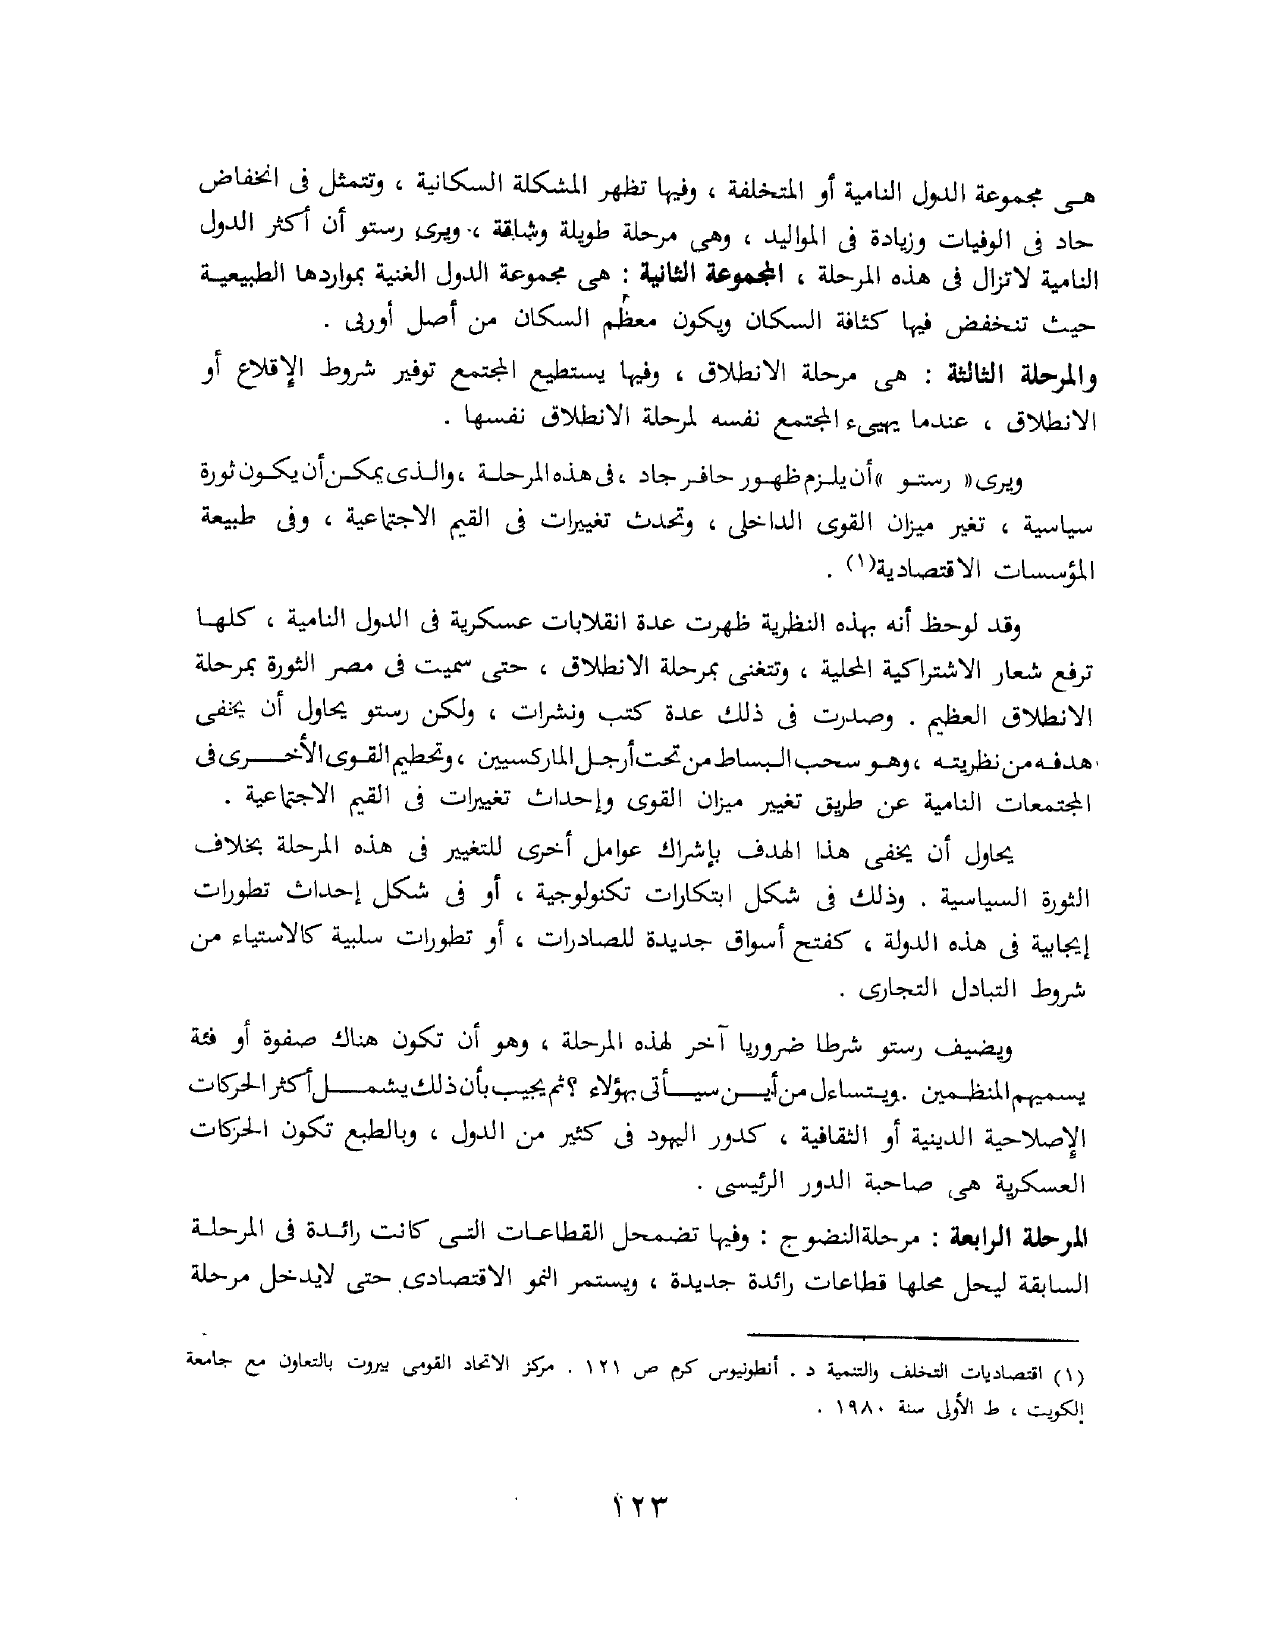 هـى مجموعة الدول النامية أو المتخلفة ، وفيها تظهر المشكلة السكانية ، وتتمثل فى انخفاض
حاد فى الوفيات وزيادة فى المواليد ، وهى مرحلة طويلة وشاقة ، ويرى رستو أن أكثر الدول
النامية لاتزال فى هذه المرحلة ، المجموعة الثانية : هى مجموعة الدول الغنية بمواردها الطبيعيـة
حيث تنخفض فيها كثافة السكان ويكون معظم السكان من أصل أوربى .
والمرحلة الثالثة : هى مرحلة الانطلاق ، وفيها يستطيع المجتمع توفير شروط الإقلاع أو
الانطلاق ، عندما يهيىء المجتمع نفسه لمرحلة الانطلاق نفسها .
ويرى « رستـو » أن يلـزم ظهـور حافـر جاد ، فى هذه المرحلـة ، والـذى يمكـن أن يكـون ثورة
سياسية ، تغير ميزان القوى الداخلى ، وتحدث تغييرات فى القيم الاجتماعية ، وفى طبيعة
المؤسسات الاقتصادية(١) .
وقد لوحظ أنه بهذه النظرية ظهرت عدة انقلابات عسكرية فى الدول النامية ، كلهـا
ترفع شعار الاشتراكية المحلية ، وتتغنى بمرحلة الانطلاق ، حتى سميت فى مصر الثورة بمرحلة
الانطلاق العظيم . وصدرت فى ذلك عدة كتب ونشرات ، ولكن رستو يحاول أن يخفى
هدفـه من نظريتـه ، وهـو سحب الـبساط من تحت أرجـل الماركسيين ، وتحطيم القـوى الأخـــرى فى
المجتمعات النامية عن طريق تغيير ميزان القوى وإحداث تغييرات فى القيم الاجتماعية .
يحاول أن يخفى هذا الهدف بإشراك عوامل أخرى للتغيير فى هذه المرحلة بخلاف
الثورة السياسية . وذلك فى شكل ابتكارات تكنولوجية ، أو فى شكل إحداث تطورات
إيجابية فى هذه الدولة ، كفتح أسواق جديدة للصادرات ، أو تطورات سلبية كالاستياء من
شروط التبادل التجارى .
ويضيف رستو شرطا ضروريا آخر لهذه المرحلة ، وهو أن تكون هناك صفوة أو فئة
يسميهم المنظـمين . ويـتساءل من أيـــن سيـــأتى بهؤلاء ؟ ثم يجيب بأن ذلك يشمـــل أكثر الحركات
الإصلاحية الدينية أو الثقافية ، كدور اليهود فى كثير من الدول ، وبالطبع تكون الحركات
العسكرية هى صاحبة الدور الرئيسى .
المرحلة الرابعة : مرحلة النضوج : وفيها تضمحل القطاعـات التـى كانت رائـدة فى المرحلـة
السابقة ليحل محلها قطاعات رائدة جديدة ، ويستمر النمو الاقتصادى حتى لايدخل مرحلة
(١) اقتصاديات التخلف والتنمية د . أنطونيوس كرم ص ١٢١ . مركز الاتحاد القومى بيروت بالتعاون مع جامعة
الكويت ، ط الأولى سنة ١٩٨٠ .
١٢٣